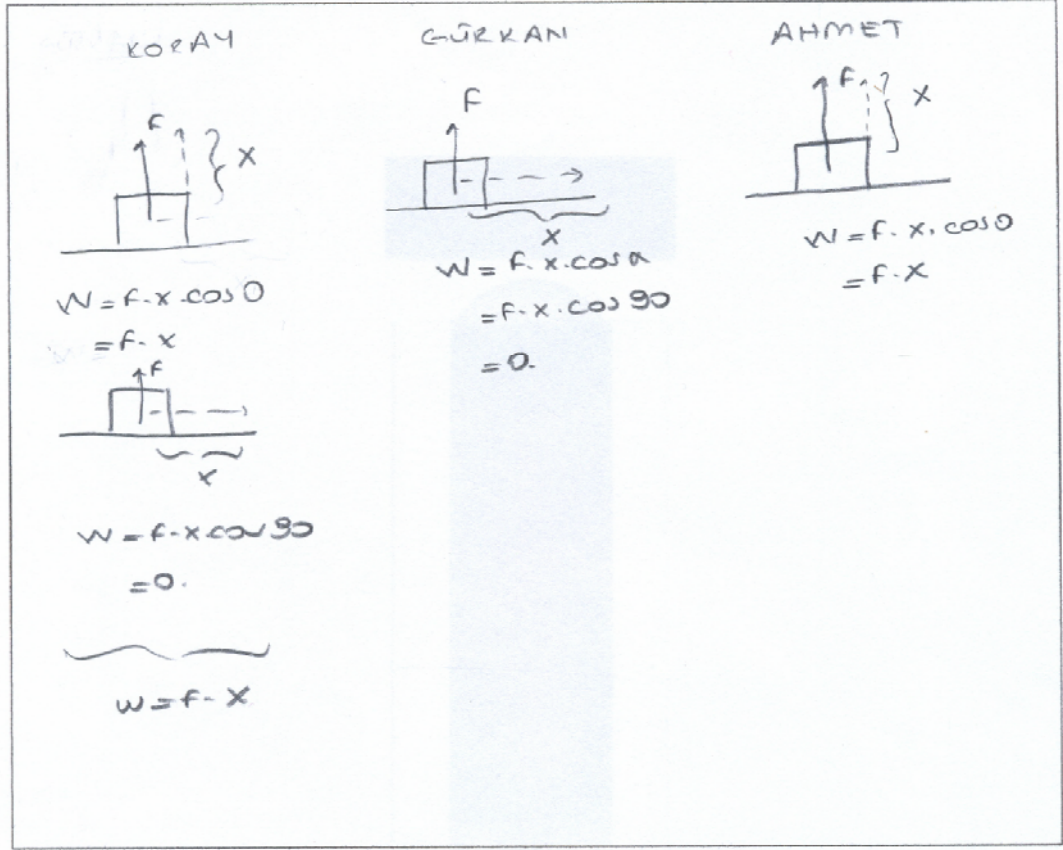 KORAY
F
X
W = F·X·cos 0
= F·X
F
X
W = F·X cos 90
= 0.
W = F·X
GÜRKAN
F
X
W = F·X·cos α
= F·X·cos 90
= 0.
AHMET
F
X
W = F·X·cos 0
= F·X